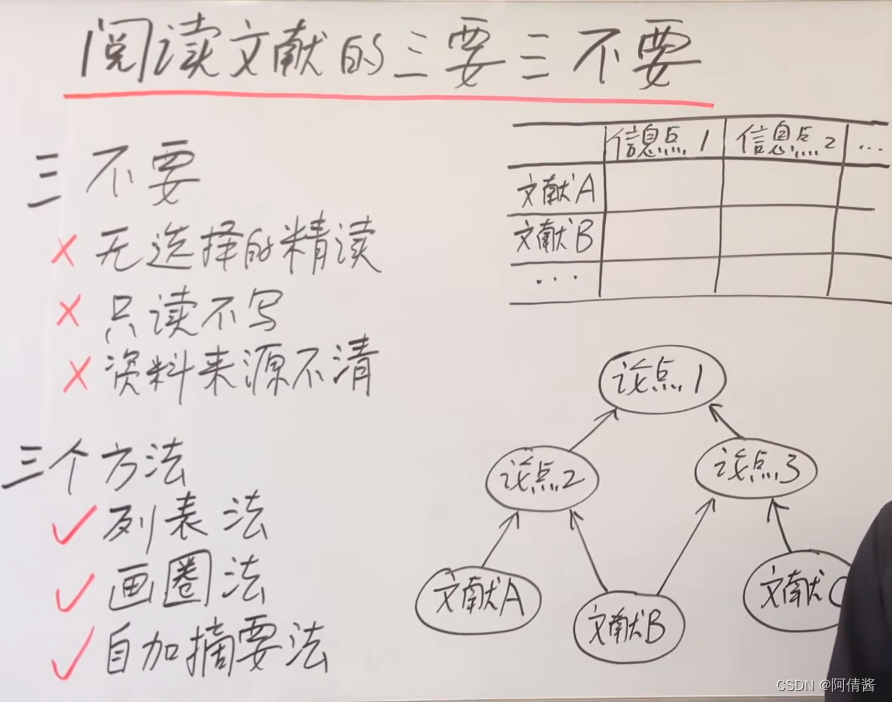 阅读文献的三要三不要
三不要
× 无选择的精读
× 只读不写
× 资料来源不清
三个方法
✓ 列表法
✓ 画圈法
✓ 自加摘要法
信息点1 信息点2 ...
文献A
文献B
...
论点1
论点2 论点3
文献A 文献B 文献C
CSDN @阿倩酱